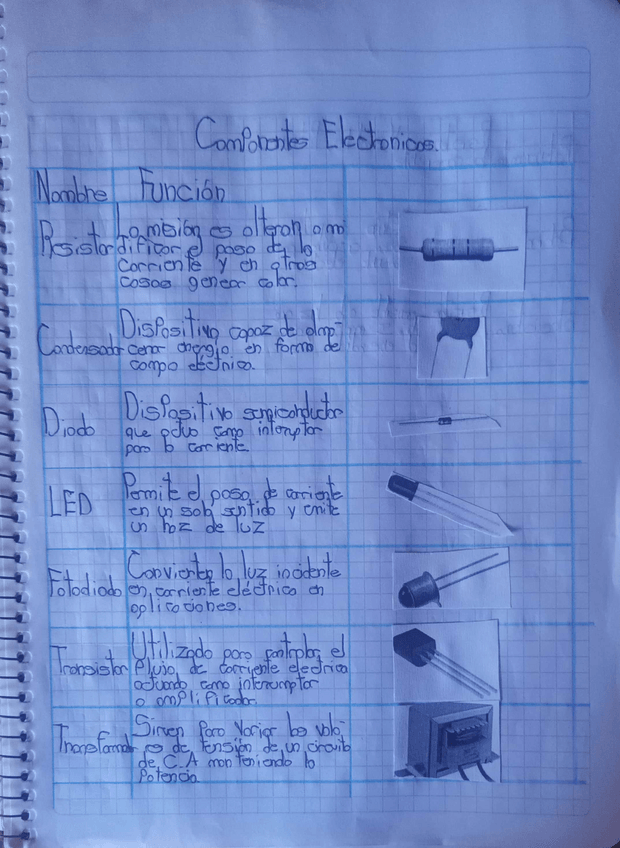 Componentes Electronicos.
Nombre Función
Resistor
La misión es alteran o mo
dificar el paso de la
corriente y en otros
casos generar calor.
Condensador
Dispositivo capaz de alma-
cenar energia en forma de
campo eléctrico.
Diodo
Dispositivo semiconductor
que actua como interruptor
para la corriente
LED
Permite el paso de corriente
en un solo sentido y emite
un haz de luz
Fotodiodo
Convierten la luz incidente
en corriente eléctrica en
aplicaciones.
Transistor
Utilizado para controlar el
flujo de corriente electrica
actuando como interrumptor
o amplificador
Sirven Para Variar los valo-
res de tensión de un circuito
de C.A manteniendo la
Potencia